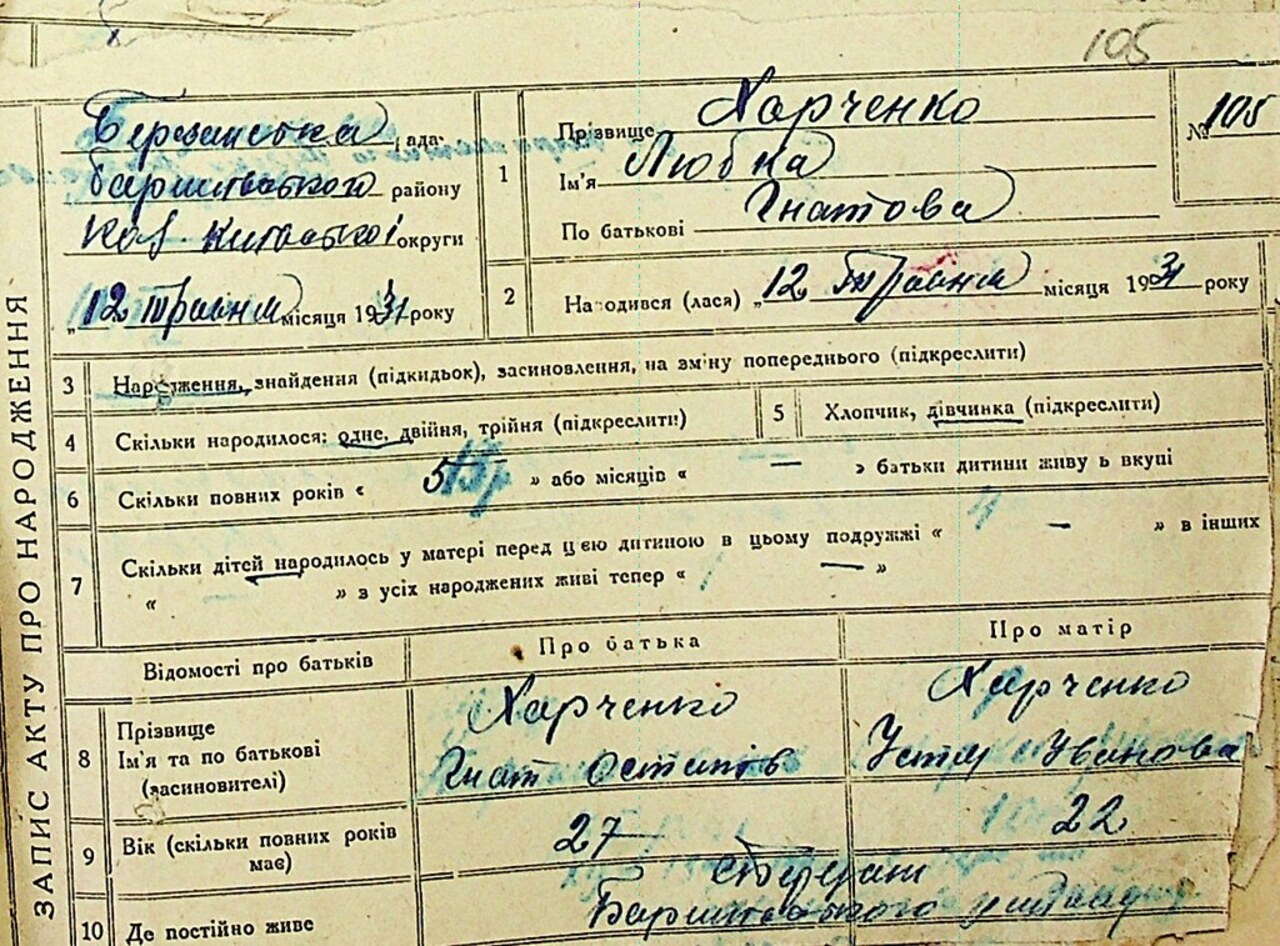 105
ЗАПИС АКТУ ПРО НАРОДЖЕННЯ
Березанська рада
Баришівського району
Київської округи
„12 травня місяця 1931 року
1
Прізвище Харченко
Ім'я Любка
По батькові Гнатова
№ 105
2 Народився (лася) „12 травня місяця 1931 року
3 Народження, знайдення (підкидьок), засиновлення, на зміну попереднього (підкреслити)
4 Скільки народилося: одне, двійня, трійня (підкреслити)
5 Хлопчик, дівчинка (підкреслити)
6 Скільки повних років « 5 » або місяців « — » батьки дитини живуть вкупі
7 Скільки дітей народилось у матері перед цією дитиною в цьому подружжі « — » в інших
« » з усіх народжених живі тепер « — »
Відомості про батьків
Про батька
Про матір
8 Прізвище
Ім'я та по батькові
(засиновителі)
Харченко
Гнат Остапів
Харченко
Устя Іванова
9 Вік (скільки повних років
має)
27
22
10 Де постійно живе
Баришівського